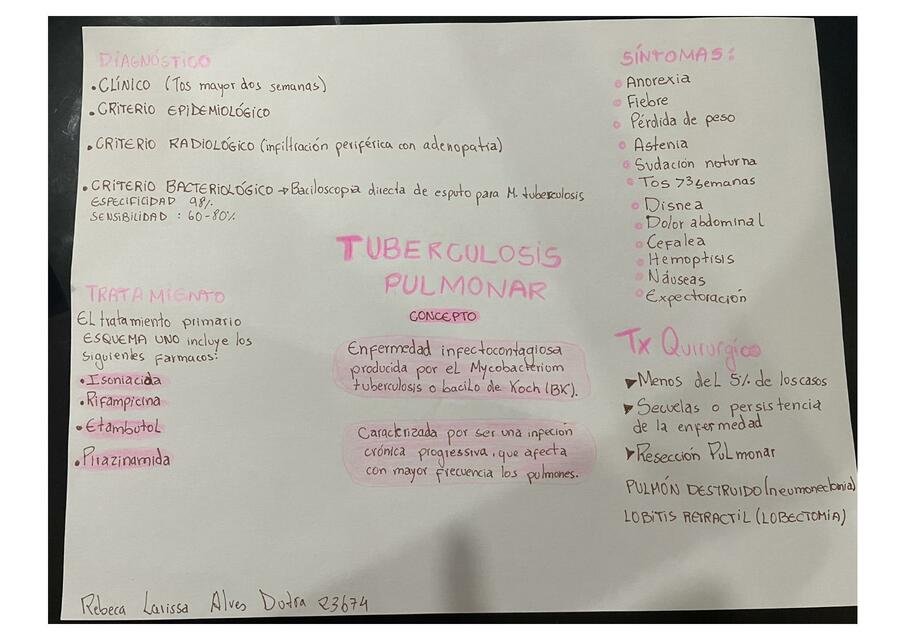 DIAGNÓSTICO
• CLÍNICO (Tos mayor dos semanas)
• CRITERIO EPIDEMIOLÓGICO
• CRITERIO RADIOLÓGICO (infiltración periférica con adenopatía)
• CRITERIO BACTERIOLÓGICO → Baciloscopia directa de esputo para M. tuberculosis
ESPECIFICIDAD 98%
SENSIBILIDAD : 60-80%
SÍNTOMAS:
Anorexia
Fiebre
Pérdida de peso
Astenia
Sudación noturna
Tos >3 semanas
Disnea
Dolor abdominal
Cefalea
Hemoptisis
Náuseas
Expectoración
TUBERCULOSIS
PULMONAR
CONCEPTO
Enfermedad infectocontagiosa
producida por el Mycobacterium
tuberculosis o bacilo de Koch (BK).
Caracterizada por ser una infeción
crónica progressiva, que afecta
con mayor frecuencia los pulmones.
TRATAMIENTO
El tratamiento primario
ESQUEMA UNO incluye los
siguientes farmacos:
• Isoniacida
• Rifampicina
• Etambutol
• Pirazinamida
Tx Quirurgico
▶ Menos del 5% de los casos
▶ Secuelas o persistencia
de la enfermedad
▶ Resección Pulmonar
PULMÓN DESTRUIDO (neumonectomia)
LOBITIS RETRACTIL (LOBECTOMIA)
Rebeca Larissa Alves Dutra 23674